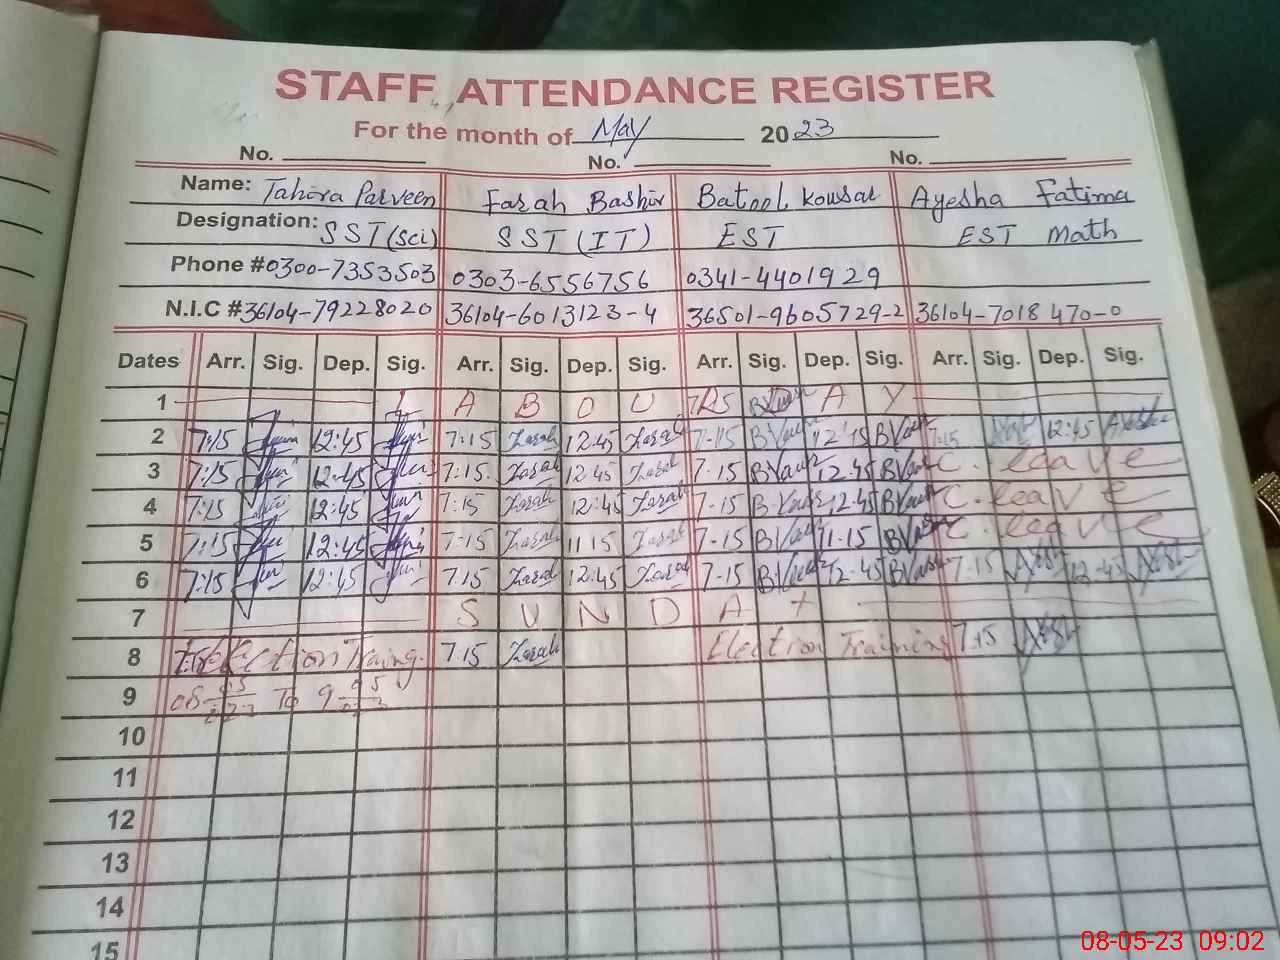 STAFF ATTENDANCE REGISTER
For the month of May 2023
No. No. No.
Name: Tahira Parveen Farah Bashir Batool kousar Ayesha Fatima
Designation: SST (Sci) SST (IT) EST EST Math
Phone #0300-7353503 0303-6556756 0341-4401929
N.I.C #36104-79228020 36104-6013123-4 36501-9605729-2 36104-7018470-0
Dates Arr. Sig. Dep. Sig. Arr. Sig. Dep. Sig. Arr. Sig. Dep. Sig. Arr. Sig. Dep. Sig.
1 L A B O U R D A Y
2 7:15 12:45 7:15 Farah 12:45 Farah 7-15 12:45 Ayesha
3 7:15 12:45 7:15 Farah 12:45 Farah 7-15 12-45 C. leave
4 7:15 12:45 7:15 Farah 12:45 Farah 7-15 12-45 C. leave
5 7:15 12:45 7:15 Farah 11:15 Farah 7-15 11-15 C. leave
6 7:15 12:45 7:15 Farah 12:45 Farah 7-15 12-45 7:15 12-45
7 S U N D A Y
8 7:15 Farah Election Training 7:15
9 To
10
11
12
13
14
15
08-05-23 09:02